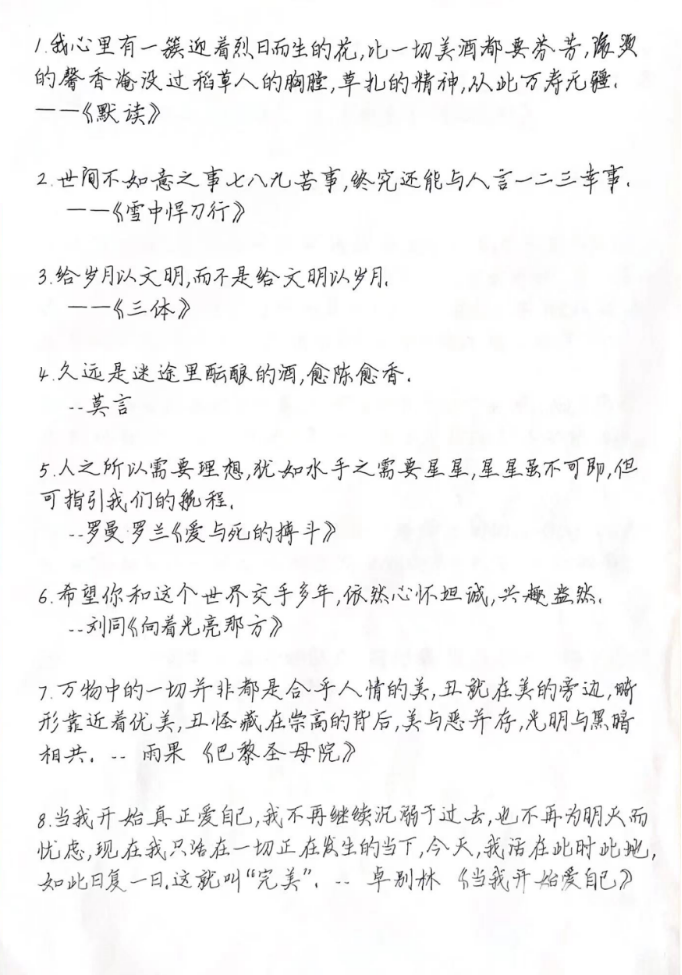 1.我心里有一簇迎着烈日而生的花,比一切美酒都要芬芳,滚烫
的馨香淹没过稻草人的胸膛,草扎的精神,从此万寿无疆.
——《默读》
2.世间不如意之事七八九苦事,终究还能与人言一二三幸事.
——《雪中悍刀行》
3.给岁月以文明,而不是给文明以岁月.
——《三体》
4.久远是迷途里酝酿的酒,愈陈愈香.
--莫言
5.人之所以需要理想,犹如水手之需要星星,星星虽不可即,但
可指引我们的航程.
--罗曼·罗兰《爱与死的搏斗》
6.希望你和这个世界交手多年,依然心怀坦诚,兴趣盎然.
--刘同《向着光亮那方》
7.万物中的一切并非都是合乎人情的美,丑就在美的旁边,畸
形靠近着优美,丑怪藏在崇高的背后,美与恶并存,光明与黑暗
相共. -- 雨果 《巴黎圣母院》
8.当我开始真正爱自己,我不再继续沉溺于过去,也不再为明天而
忧虑,现在我只活在一切正在发生的当下,今天,我活在此时此地,
如此日复一日.这就叫“完美”. -- 卓别林 《当我开始爱自己》